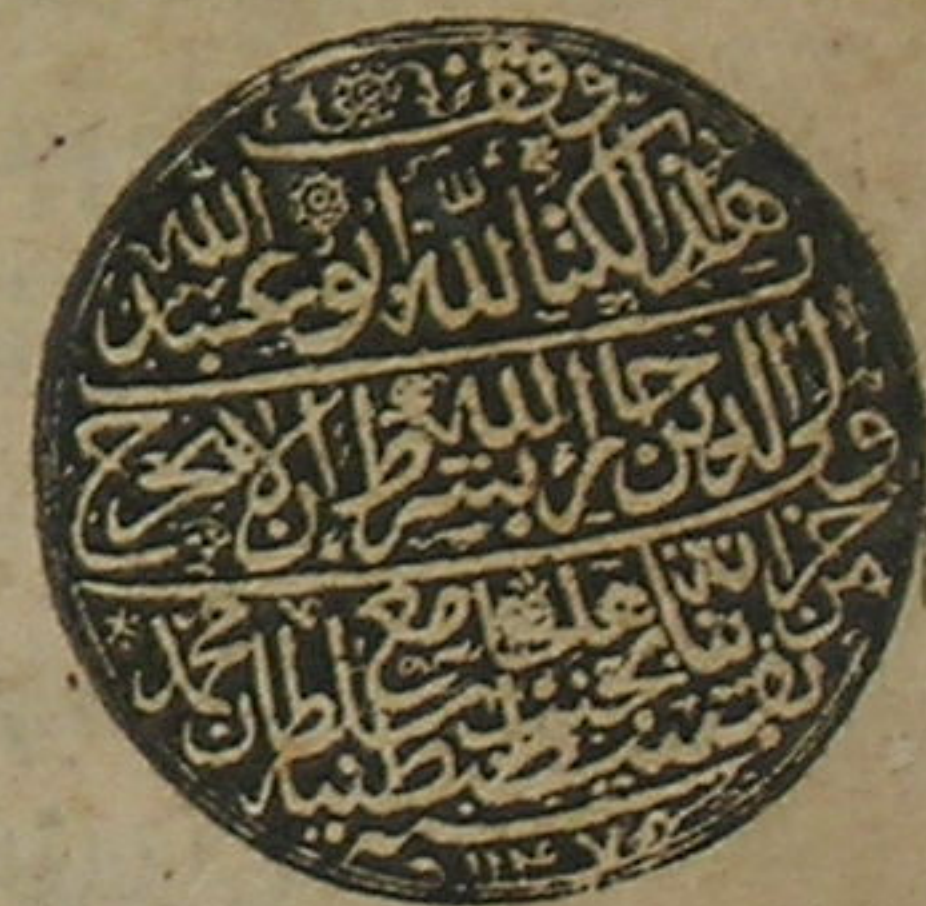 وقف
هذا الكتاب لله ابو عبد الله
ولى الدين جار الله بشرط ان لا يخرج
من خزانة بناها بجنب جامع سلطان محمد
بقسطنطينيه
سنه